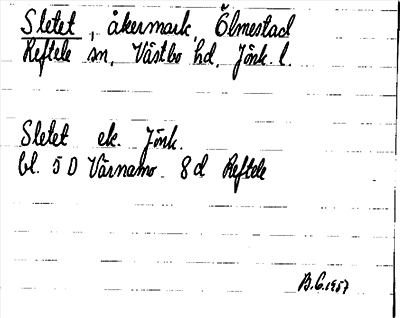 Sletet, åkermark, Ölmestad
Reftele sn, Västbo hd, Jönk. l.
Sletet ek. Jönk.
bl. 5 D Värnamo 8d Reftele
B.G. 1957